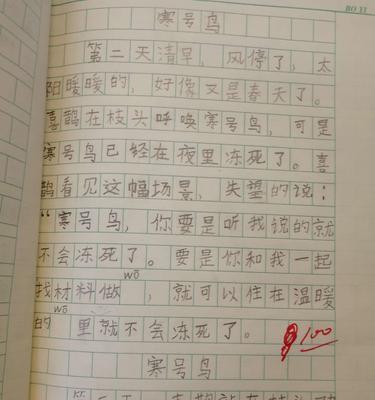 BO YI
寒号鸟
第二天清早，风停了，太
阳暖暖的，好像又是春天了。
喜鹊在枝头呼唤寒号鸟，可是
寒号鸟已经在夜里冻死了。喜
鹊看见这幅场景，失望的说：
“寒号鸟，你要是听我说的就
不会冻死了。要是你和我一起
找材料做wō，就可以住在温暖
的wō里就不会冻死了。
100
寒号鸟
第二天